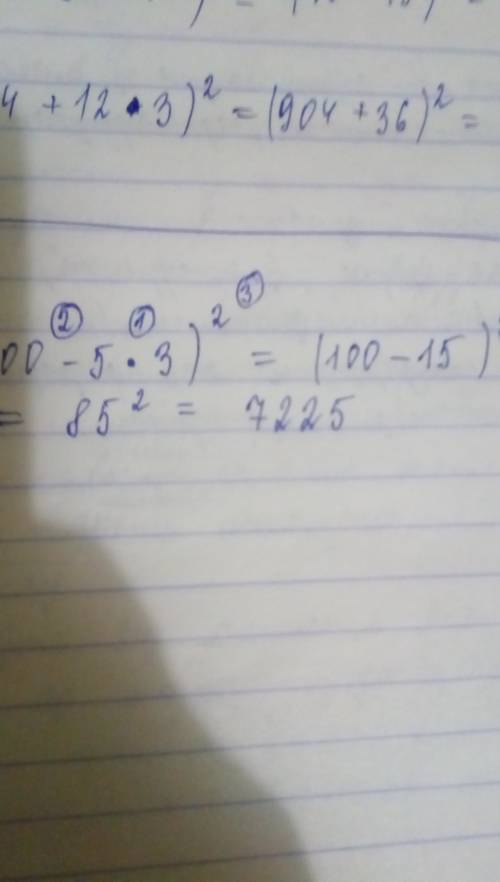 4 + 12 • 3)² = (904 + 36)² =
② ① ③
00 - 5 • 3)² = (100 - 15)
= 85² = 7225